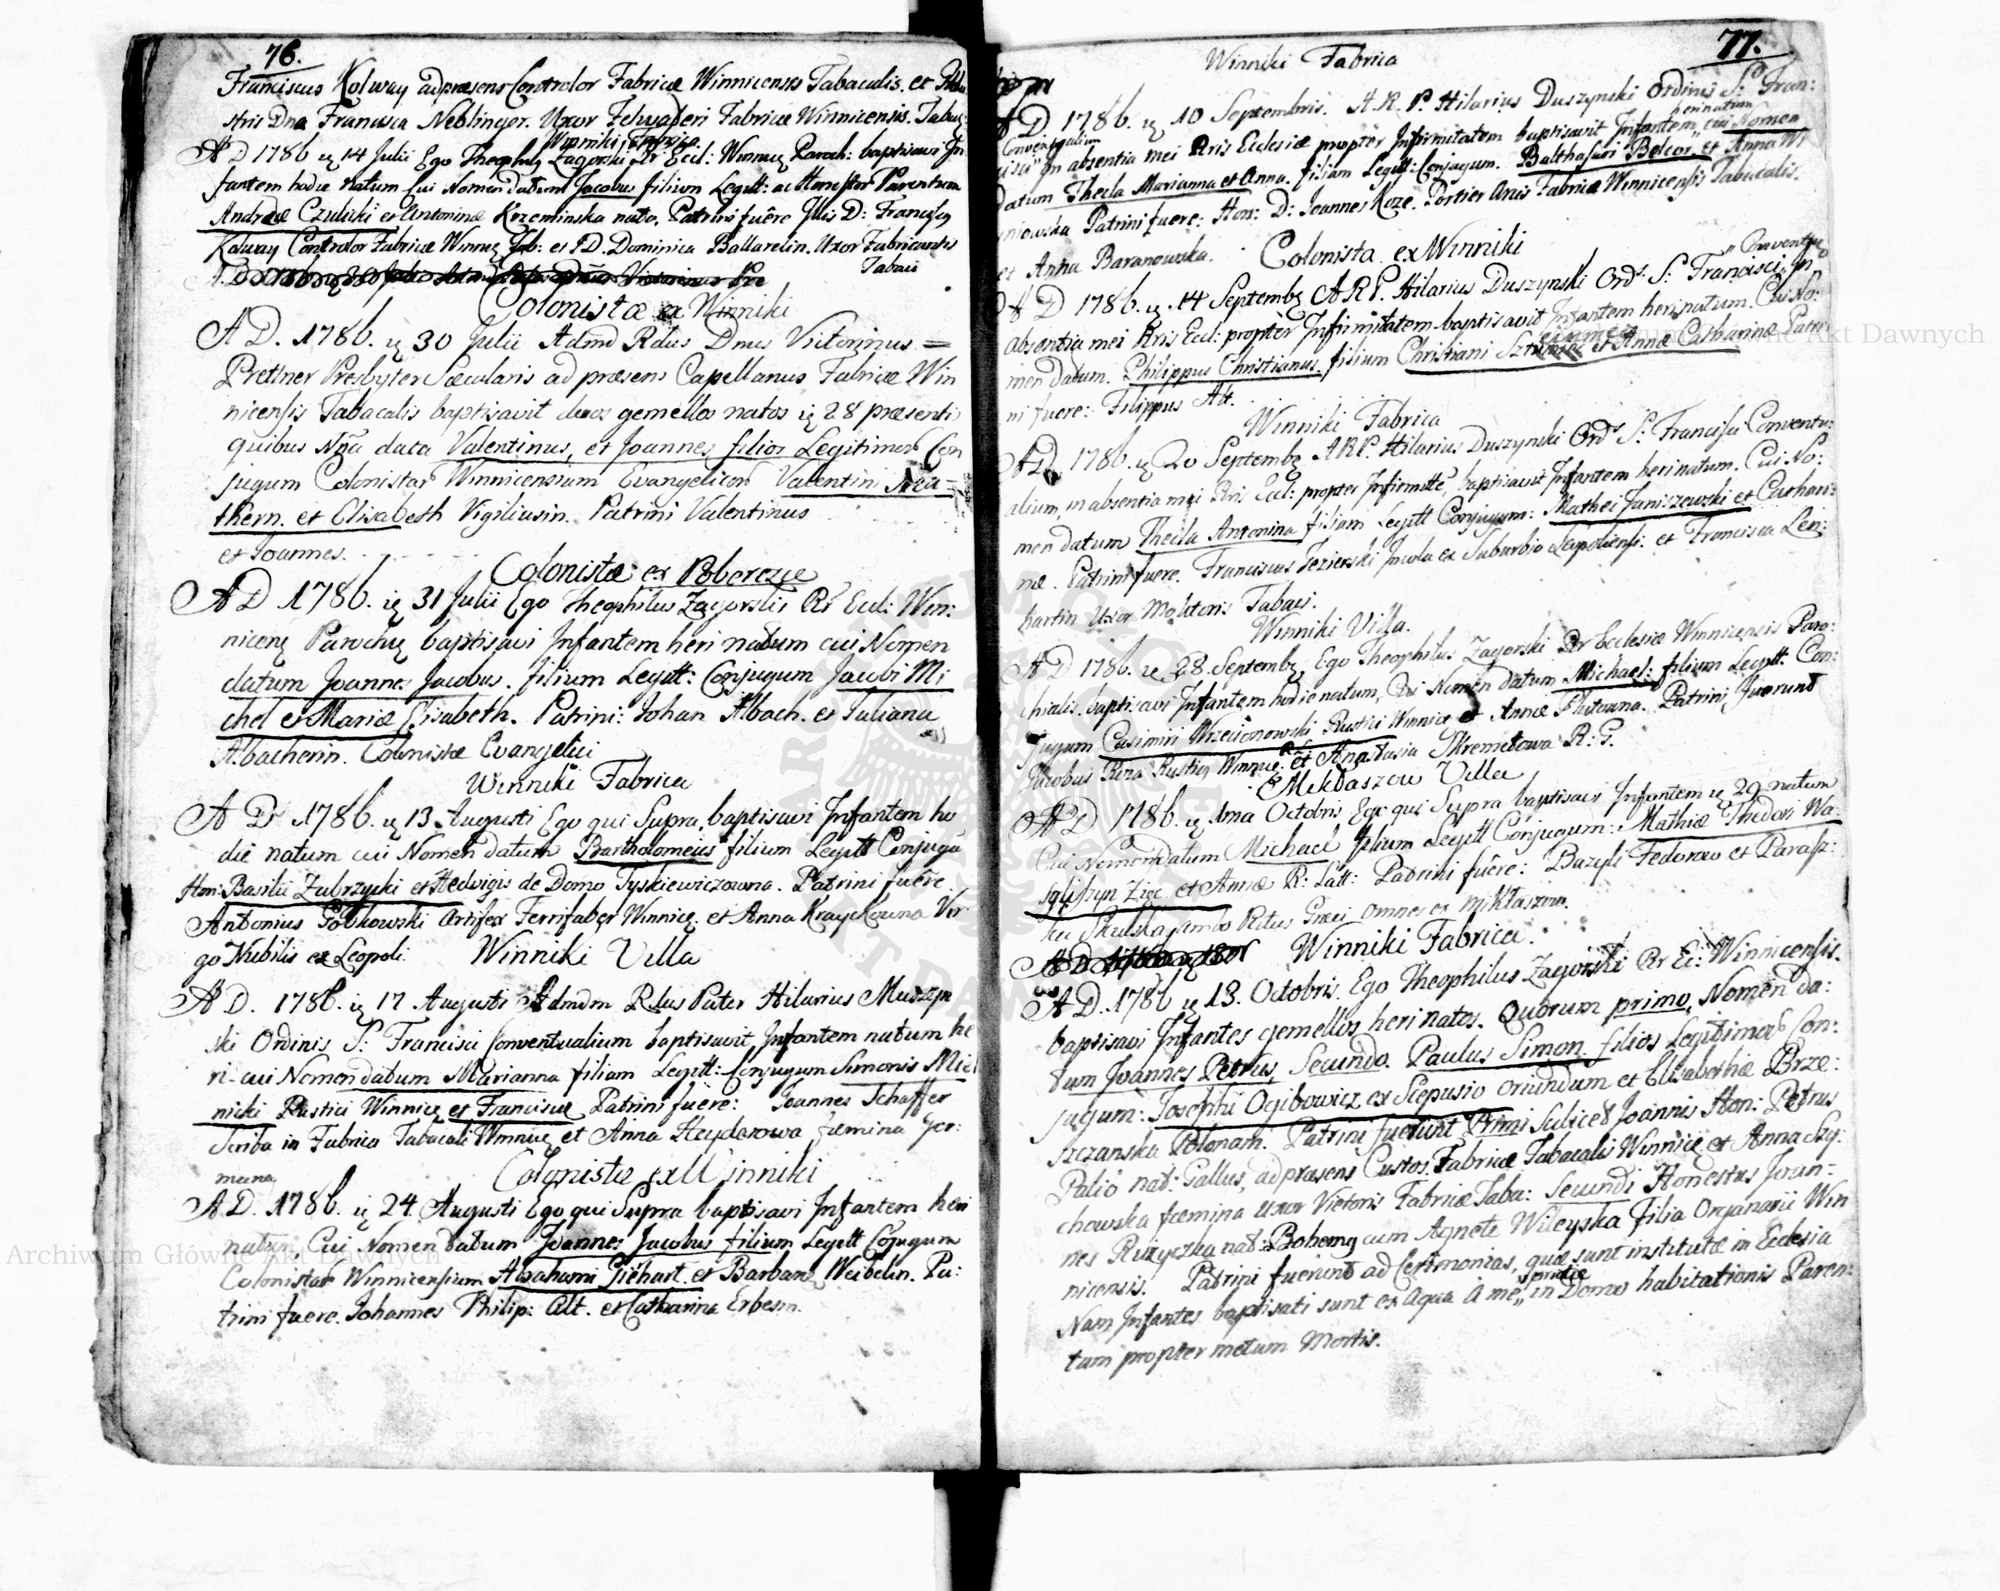 76.
Franciscus Kolway ad præsens Controlor Fabricæ Winnicensis Tabacalis. et
stris Dna Francisca Neblinger. Uxor Felwaderi Fabricæ Winnicensis. Tabac
Winniki Fabrica
A D 1786 ię 14 Julii Ego Theophilus Zagorski Rr Eccl: Winnicę Paroch: baptisavi In
fantem hodie natum Cui Nomen datum Jacobus filium Legitt: ac Honestor Parentum
Andreæ Czuliski et Antoninæ Krzeminska nato, Patrini fuêre Illis D: Franciscę
Kolway Controlor Fabricæ Winnicę Tab: et D. Dominica Ballarelin. Uxor Fabricantis
Tabaci
Colonistæ ex Winniki
A D. 1786. ię 30 Julii Admd Rdus Dnus Victorinus =
Prettner Presbyter Sæcularis ad præsens Capellanus Fabricæ Win
nicensis Tabacalis baptisavit duos gemellos natos ię 28 præsenti
quibus Nña data Valentinus, et Joannes filios Legitimos Con
jugum Colonistar Winnicensium Evangelicor Valentini Neu=
thern. et Elisabeth Vigiliusin. Patrini Valentinus
et Joannes.
Colonistæ ex Poberezye
A D 1786. ię 31 Julii Ego Theophilus Zagorski Rr Eccl: Win:
nicenę Parochę baptisavi Infantem heri natum cui Nomen
datum Joannes Jacobus. filium Legitt: Conjugum Jacobi Mi
chel et Mariæ Elisabeth. Patrini: Johan Albach. et Juliana
Albacherin. Colonistæ Evangelici
Winniki Fabrica
A D 1786. ię 13 Augusti Ego qui Supra baptisavi Infantem ho
die natum cui Nomen datum Bartholomeus filium Legitt Conjugū
Hon: Basilii Zubrzycki et Hedvigis de Domo Tyskiewiczowna. Patrini fuêre.
Antonius Gołkowski Artifex Ferrifaber Winnicę. et Anna Krayckowna Vir
go Nubilis ex Leopoli. Winniki Villa
A D. 1786. ię 17 Augusti Admdm Rdus Pater Hilarius Muszyn
ski Ordinis S: Francisci Conventualium baptisavit Infantem natum he
ri- cui Nomen datum Marianna filiam Legitt: Conjugum Simonis Mic
nicki Rustici Winnicę et Franciscæ Patrini fuêre: Joannes Schaffer
Scriba in Fabrica Tabacali Winnicę et Anna Heyderowa fæmina Ger:
mana.
Colonistæ ex Winniki
A D. 1786. ię 24 Augusti Ego qui Supra baptisavi Infantem heri
natum Cui Nomen datum Joannes Jacobus filium Legitt Cojugum
Colonistar Winnicensium Abrahami Giehart. et Barbaræ Weibelin. Pa:
trini fuere. Johannes Philip: Alt. et Catharina Erbesin.
77.
Winniki Fabrica
A D 1786. ię 10 Septembris. A. R. P. Hilarius Duszynski Ordinis S: Fran:
Conventualium heri natum
cisci in absentia mei Rris Eclesiæ propter Infirmitatem baptisavit Infantem cui Nomen
datum Thecla Marianna et Anna. filiam Legitt: Conjugum. Balthasari Belcor et Anna Wi
sniowska Patrini fuere: Hon: D: Joannes Koze. Portier Arcis Fabricæ Winnicensis Tabacalis.
et Anna Baranowska. Colonista ex Winniki
Conventuę
A D 1786. ię 14 Septembę A R P. Hilarius Duszynski Ord: S: Francisci, In
absentia mei Rris Eccl: propter Infirmitatem baptisavit Infantem heri natum. Cui No:
men datum. Philippus Christianus. filium Christiani et Annæ Catharinæ Patri
ni fuere: Filippus Alt.
Winniki Fabrica
A D 1786. ię 20 Septembę A R P. Hilarius Duszynski Ords S: Francisci Conventu:
alium, in absentia mei Rris Eccl: propter Infirmitte, baptisavit Infantem heri natum. Cui No:
men datum Thecla Antonina filiam Legitt Conjugum: Mathei Janiszewski et Cathari:
næ. Patrini fuere. Franciscus Jezierski Incola ex Suburbio Leopoliensi. et Francisca Len:
hartin Uxor Molitoris Tabaci.
Winniki Villa.
A D 1786. ię 28. Septembę Ego Theophilus Zagorski Rr Ecclesiæ Winnicensis Paro:
chialis. baptisavi Infantem hodie natum, Cui Nomen datum Michael: filium Legitt: Con:
jugum Casimiri Wrzecionowski Rustici Winnicę et Annæ Plutowna. Patrini fuerunt
Jacobus Rustię Winnicę. et Anastasia Skremetowa R: G.
Mikłaszow Villa
A D 1786. ię 1ma Octobris Ego qui Supra baptisavi Infantem ię 29 natum
Cui Nomen datum Michael filium Legitt Conjugum: Mathiæ Thedori Wa:
et Annæ R: Latt: Patrini fuêre: Bazyli Fedorow et Parasz:
ka Skulska ambo Ritus Græci omnes ex Mikłaszow.
Winniki Fabrica.
A D. 1786 ię 13. Octobris. Ego Theophilus Zagorski Rr Ec: Winnicensis.
baptisavi Infantes gemellos heri natos. Quorum primo, Nomen da:
tum Joannes Petrus, Secundo. Paulus Simon. filios Legitimos Con:
jugum: Josephi Ogibowicz ex Scepusio oriundum et Elisabethæ Brze:
szczanska Polonam. Patrini fuerunt Primi Scilicet Joannis Hon: Petrus
Palio nat: Gallus, ad præsens Custos Fabricæ Tabacalis Winnicę et Anna Szy:
chowska fœmina Uxor Vietoris Fabricæ Taba: Secundi Honestus Joan=
nes Ruzyczka nat: Bohemę cum Agnete Wileyska filia Organarii Win
nicensis. Patrini fuerunt ad Cerimonias, quæ sunt institutæ in Ecclesia
Nam Infantes baptisati sunt ex Aqua à me in Domo habitationis Paren:
tum propter metum Mortis.
Archiwum Główne Akt Dawnych